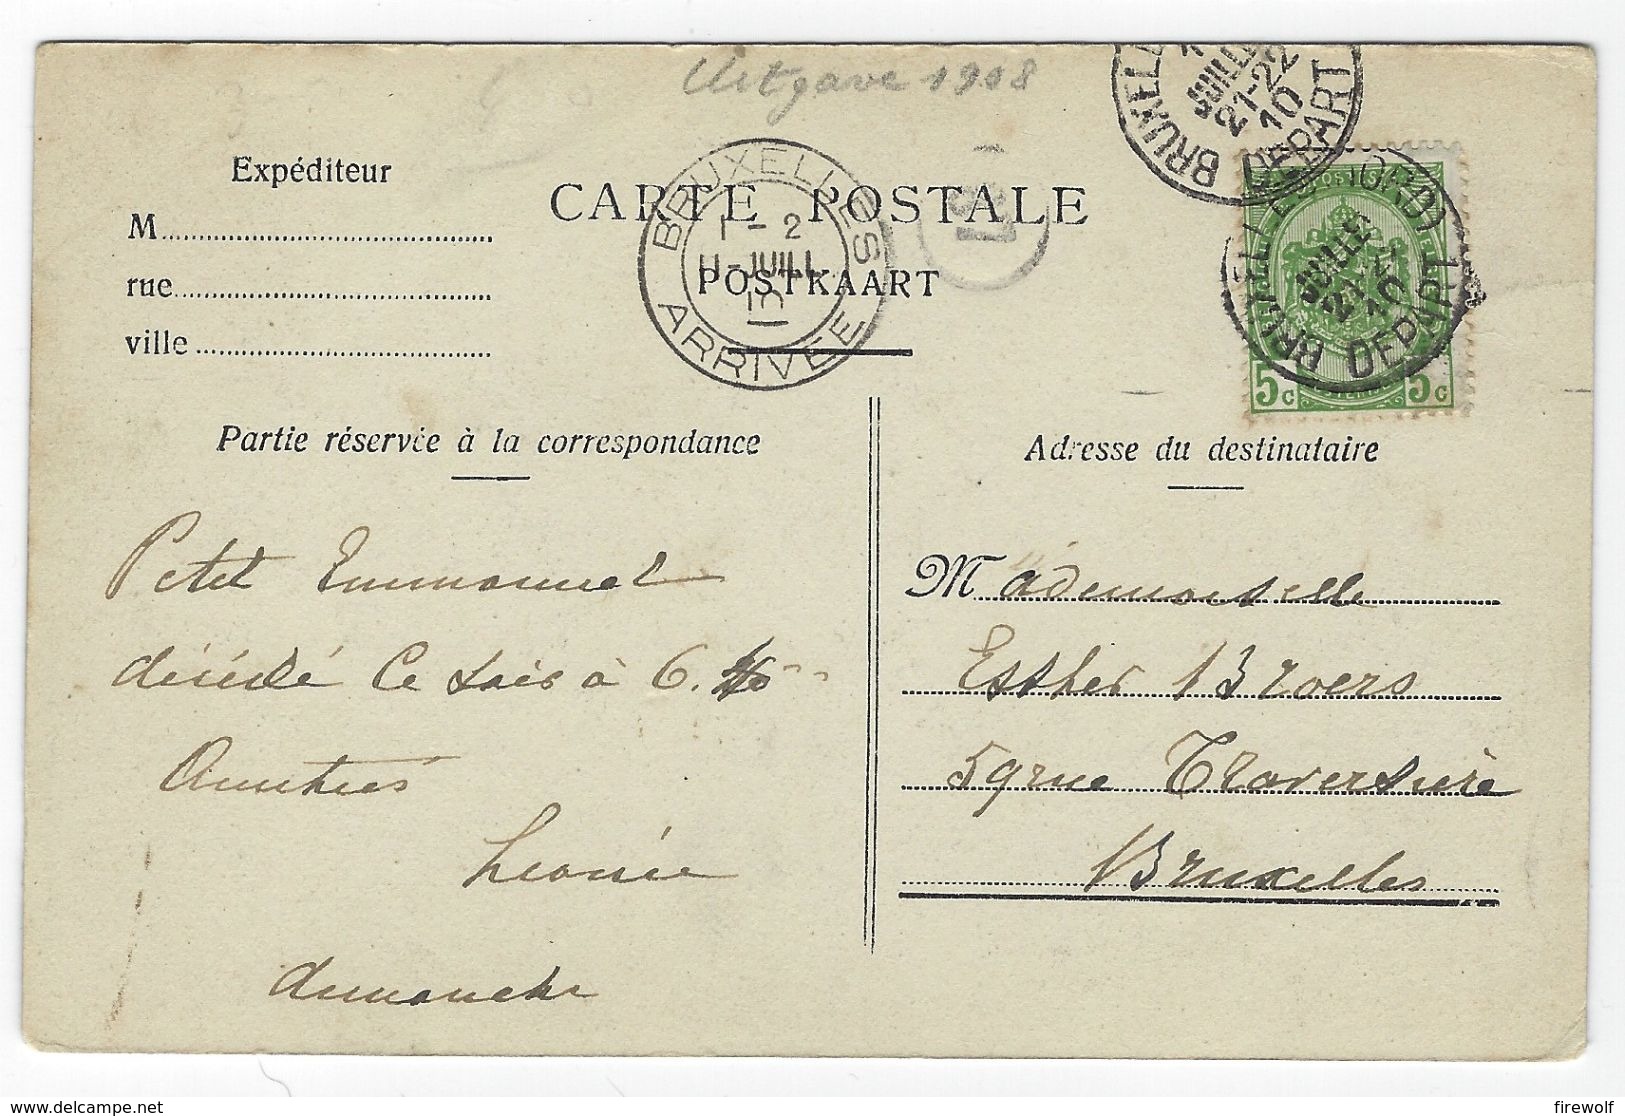 Uitgave 1908
Expéditeur
M
rue
ville
CARTE POSTALE
POSTKAART
BRUXELLES
1-2
11-JUILL
10
ARRIVÉE
JUILLE
21-22
10
DEPART
BRUXELLES
DEPART
5c 5c
Partie réservée à la correspondance
Adresse du destinataire
Petit Emmanuel
décédé ce soir à 6.
Amitiés
Leonie
dimanche
Mademoiselle
Esther Broers
59 rue Traversière
Bruxelles
delcampe.net
firewolf